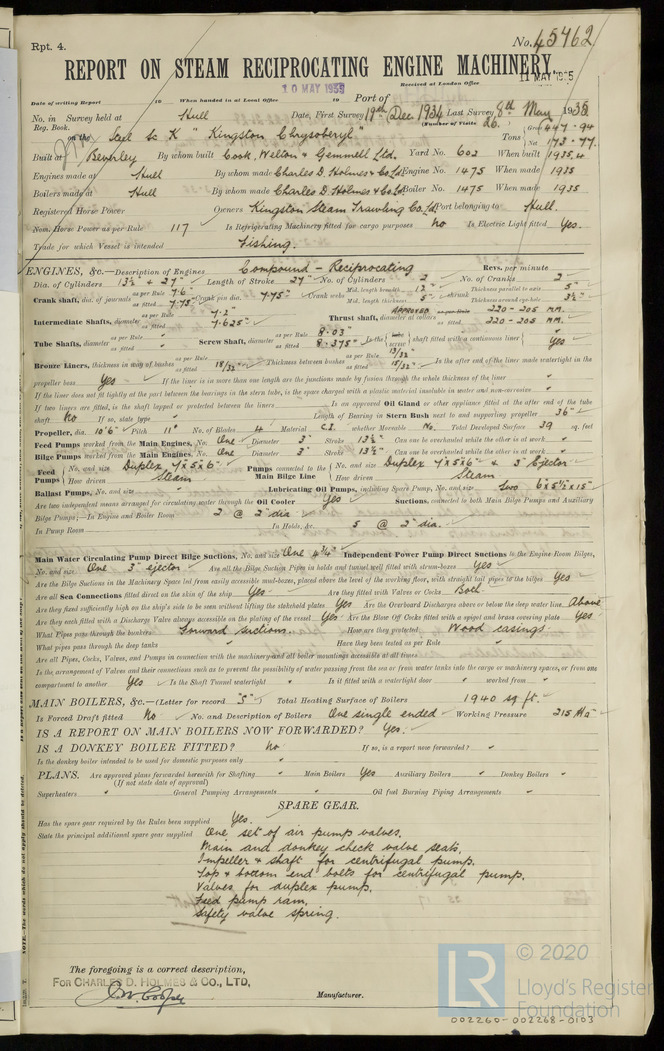 Rpt. 4.
No. 45762
REPORT ON STEAM RECIPROCATING ENGINE MACHINERY.
Received at London Office 11 MAY 1935
10 MAY 1935
Date of writing Report 19 When handed in at Local Office 19 Port of
No. in Reg. Book. Survey held at Hull Date, First Survey 19th Dec. 1934 Last Survey 8th May 1935
(Number of Visits 26.)
on the Steel Sc K "Kingston Chrysoberyl" Tons { Gross 447.94 Net 173.77.
Built at Beverley By whom built Cook, Welton & Gemmell Ltd. Yard No. 602 When built 1935.4
Engines made at Hull By whom made Charles D. Holmes & Co Ld Engine No. 1475 When made 1935
Boilers made at Hull By whom made Charles D. Holmes & Co Ld Boiler No. 1475 When made 1935
Registered Horse Power Owners Kingston Steam Trawling Co. Ld Port belonging to Hull.
Nom. Horse Power as per Rule 117 Is Refrigerating Machinery fitted for cargo purposes No Is Electric Light fitted Yes.
Trade for which Vessel is intended Fishing.
ENGINES, &c.—Description of Engines Compound - Reciprocating Revs. per minute
Dia. of Cylinders 13½" & 27" Length of Stroke 27" No. of Cylinders 2 No. of Cranks 2
Crank shaft, dia. of journals as per Rule 7.6" as fitted 7.75" Crank pin dia. 7.75" Crank webs Mid. length breadth 12" Mid. length thickness 5" shrunk Thickness parallel to axis 5" Thickness around eye-hole 3½"
Intermediate Shafts, diameter as per Rule 7.2" as fitted 7.625" Thrust shaft, diameter at collars APPROVED as per Rule 220-205 MM. as fitted 220-205 MM.
Tube Shafts, diameter as per Rule as fitted Screw Shaft, diameter as per Rule 8.03" as fitted 8.375" Is the shaft fitted with a continuous liner Yes
Bronze Liners, thickness in way of bushes as per Rule as fitted 18/32" Thickness between bushes as per Rule 13/32 as fitted Is the after end of the liner made watertight in the
propeller boss Yes If the liner is in more than one length are the junctions made by fusion through the whole thickness of the liner "
If the liner does not fit tightly at the part between the bearings in the stern tube, is the space charged with a plastic material insoluble in water and non-corrosive "
If two liners are fitted, is the shaft lapped or protected between the liners Is an approved Oil Gland or other appliance fitted at the after end of the tube
shaft No If so, state type Length of Bearing in Stern Bush next to and supporting propeller 36"
Propeller, dia. 10'6" Pitch 11'0 No. of Blades 4 Material C.I. whether Moveable No. Total Developed Surface 39 sq. feet
Feed Pumps worked from the Main Engines, No. One Diameter 3" Stroke 13½" Can one be overhauled while the other is at work "
Bilge Pumps worked from the Main Engines, No. One Diameter 3" Stroke 13½" Can one be overhauled while the other is at work "
Feed Pumps { No. and size Duplex 7"x5"x6" Pumps connected to the Main Bilge Line { No. and size Duplex 7"x5"x6" & 3" Ejector
How driven Steam How driven Steam
Ballast Pumps, No. and size Lubricating Oil Pumps, including Spare Pump, No. and size Two 6"x5½"x15"
Are two independent means arranged for circulating water through the Oil Cooler Yes Suctions, connected to both Main Bilge Pumps and Auxiliary
Bilge Pumps;—In Engine and Boiler Room 2 @ 2" dia.
In Pump Room In Holds, &c. 5 @ 2" dia.
Main Water Circulating Pump Direct Bilge Suctions, No. and size One 4¾" Independent Power Pump Direct Suctions to the Engine Room Bilges,
No. and size One 3" ejector Are all the Bilge Suction Pipes in holds and tunnel well fitted with strum-boxes Yes
Are the Bilge Suctions in the Machinery Space led from easily accessible mud-boxes, placed above the level of the working floor, with straight tail pipes to the bilges Yes
Are all Sea Connections fitted direct on the skin of the ship Yes Are they fitted with Valves or Cocks Both.
Are they fixed sufficiently high on the ship's side to be seen without lifting the stokehold plates Yes Are the Overboard Discharges above or below the deep water line Above
Are they each fitted with a Discharge Valve always accessible on the plating of the vessel Yes Are the Blow Off Cocks fitted with a spigot and brass covering plate Yes
What Pipes pass through the bunkers Forward suctions. How are they protected Wood casings.
What pipes pass through the deep tanks Have they been tested as per Rule
Are all Pipes, Cocks, Valves, and Pumps in connection with the machinery and all boiler mountings accessible at all times
Is the arrangement of Valves and their connections such as to prevent the possibility of water passing from the sea or from water tanks into the cargo or machinery spaces, or from one
compartment to another Yes Is the Shaft Tunnel watertight " Is it fitted with a watertight door " worked from "
MAIN BOILERS, &c.—(Letter for record "S") Total Heating Surface of Boilers 1940 sq ft.
Is Forced Draft fitted No No. and Description of Boilers One single ended Working Pressure 215 lbs
IS A REPORT ON MAIN BOILERS NOW FORWARDED? Yes.
IS A DONKEY BOILER FITTED? No If so, is a report now forwarded? "
Is the donkey boiler intended to be used for domestic purposes only
PLANS. Are approved plans forwarded herewith for Shafting " Main Boilers Yes Auxiliary Boilers " Donkey Boilers "
(If not state date of approval)
Superheaters " General Pumping Arrangements " Oil fuel Burning Piping Arrangements "
SPARE GEAR.
Has the spare gear required by the Rules been supplied Yes.
State the principal additional spare gear supplied One set of air pump valves.
Main and donkey check valve seats.
Impeller & shaft for centrifugal pump.
Top & bottom end bolts for centrifugal pump.
Valves for duplex pump.
Feed pump ram.
Safety valve spring.
The foregoing is a correct description,
FOR CHARLES D. HOLMES & CO., LTD,
Manufacturer.
© 2020
LR
Lloyd's Register
Foundation
002260-002268-0103